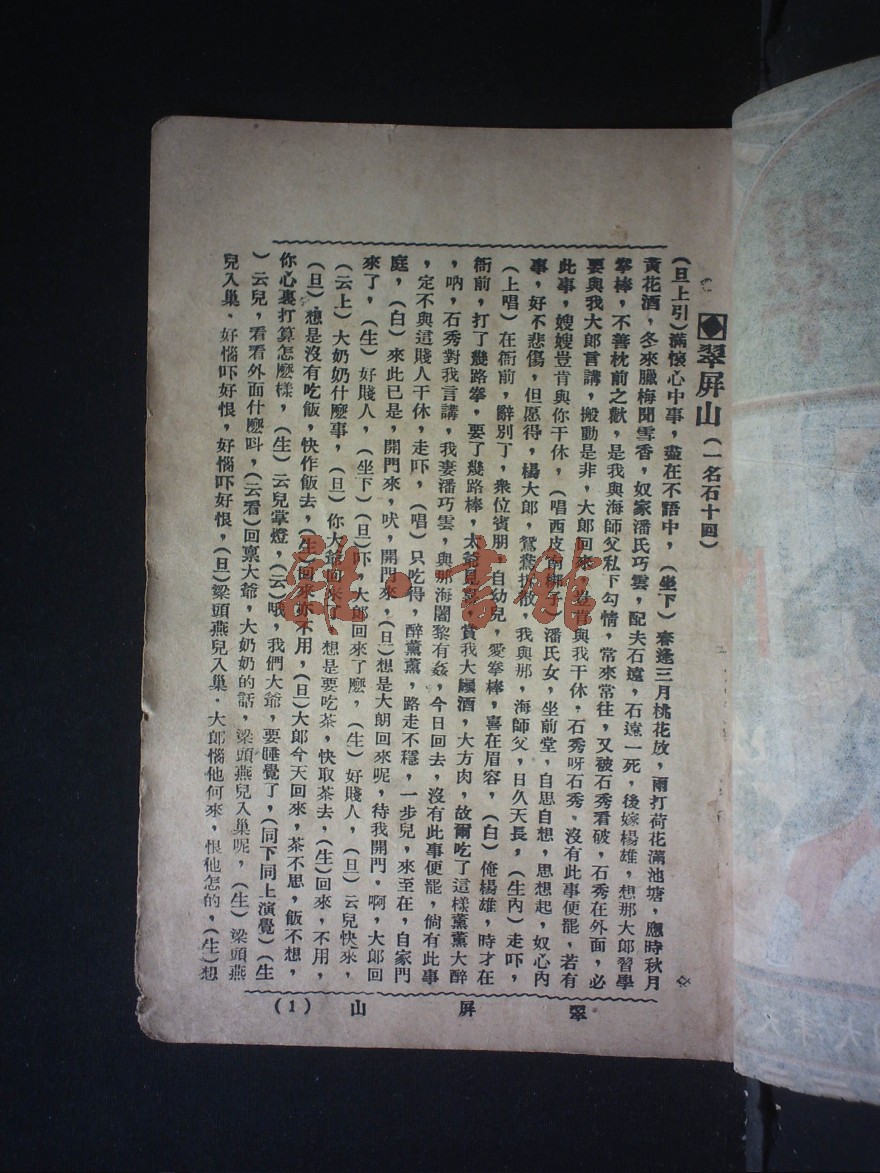 翠屏山(一名石十回)
(旦上引)滿懷心中事,盡在不語中,(坐下)春逢三月桃花放,雨打荷花滿池塘,應時秋月
黃花酒,冬來臘梅聞雪香,奴家潘氏巧雲,配夫石遠,石遠一死,後嫁楊雄,想那大郎習學
拳棒,不善枕前之歡,是我與海師父私下勾情,常來常往,又被石秀看破,石秀在外面,必
要與我大郎言講,搬動是非,大郎回來,豈肯與我干休,石秀呀石秀,沒有此事便罷,若有
此事,嫂嫂豈肯與你干休,(唱西皮南梆子)潘氏女,坐前堂,自思自想,思想起,奴心內
事,好不悲傷,但愿得,楊大郎,鴛鴦拆散,我與那,海師父,日久天長,(生內)走吓,
(上唱)在衙前,辭別丁,衆位賓朋,自幼兒,愛拳棒,喜在眉容,(白)俺楊雄,時才在
衙前,打了幾路拳,耍了幾路棒,太爺見喜,賞我大罎酒,大方肉,故爾吃了這樣薰薰大醉
,吶,石秀對我言講,我妻潘巧雲,與那海闍黎有姦,今日回去,沒有此事便罷,倘有此事
,定不與這賤人干休,走吓,(唱)只吃得,醉薰薰,路走不穩,一步兒,來至在,自家門
庭,(白)來此已是,開門來,吠,開門來,(旦)想是大朗回來呢,待我開門,啊,大郎回
來了,(生)好賤人,(坐下)(旦)吓 大郎回來了麽,(生)好賤人,(旦)云兒快來,
(云上)大奶奶什麽事,(旦)你大爺回來了 想是要吃茶,快取茶去,(生)回來,不用,
(旦)想是沒有吃飯,快作飯去,(生)回來亦不用,(旦)大郎今天回來,茶不思,飯不想,
你心裏打算怎麽樣,(生)云兒掌燈,(云)哦,我們大爺,要睡覺了,(同下同上演覺)(生
)云兒,看看外面什麽呌,(云看)回禀大爺,大奶奶的話,梁頭燕兒入巢呢,(生)梁頭燕
兒入巢,好惱吓好恨,好惱吓好恨,(旦)梁頭燕兒入巢,大郎惱他何來,恨他怎的,(生)想
翠屏山 (1)
雜·書館